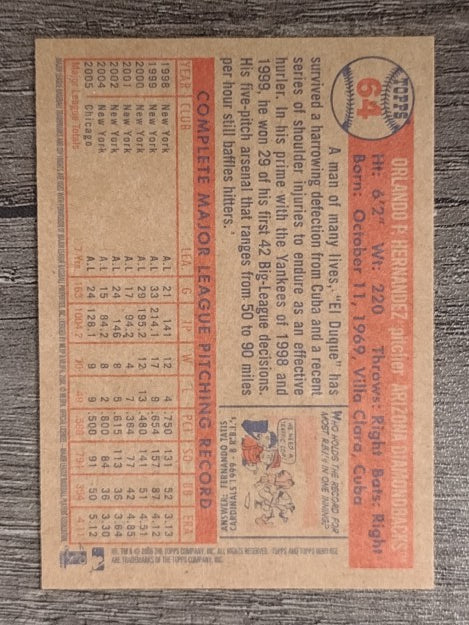 TOPPS
64
ORLANDO P. HERNANDEZ pitcher ARIZONA
Ht: 6'2" Wt: 220 Throws: Right Bats: Right
Born: October 11, 1969, Villa Clara, Cuba
A man of many lives, "El Duque" has
survived a harrowing defection from Cuba and a recent
series of shoulder injuries to endure as an effective
hurler. In his prime with the Yankees of 1998 and
1999, he won 29 of his first 42 Big-League decisions.
His five-pitch arsenal that ranges from 50 to 90 miles
per hour still baffles hitters.
WHO HOLDS THE RECORD FOR
MOST R.B.I.'S IN ONE INNING?
ANSWER: FERNANDO TATIS
CARDINALS 1999 - 8 R.B.I.'s
COMPLETE MAJOR LEAGUE PITCHING RECORD
YEAR CLUB LEA G IP W L PCT SO BB ERA
1998 New York A.L 21 141 12 4 .750 131 52 3.13
1999 New York A.L 33 214.1 17 9 .654 157 87 4.12
2000 New York A.L 29 195.2 12 13 .480 141 51 4.51
2001 New York A.L 17 94.2 4 7 .364 77 42 4.85
2002 New York A.L 24 146 8 5 .615 113 36 3.64
2004 New York A.L 15 84.2 8 2 .800 84 36 3.30
2005 Chicago A.L 24 128.1 9 9 .500 91 50 5.12
Major League Totals 7 Yrs. 163 1004.2 70 49
® TM & © 2006 THE TOPPS COMPANY, INC. ALL RIGHTS RESERVED. TOPPS AND TOPPS HERITAGE
ARE TRADEMARKS OF THE TOPPS COMPANY, INC.